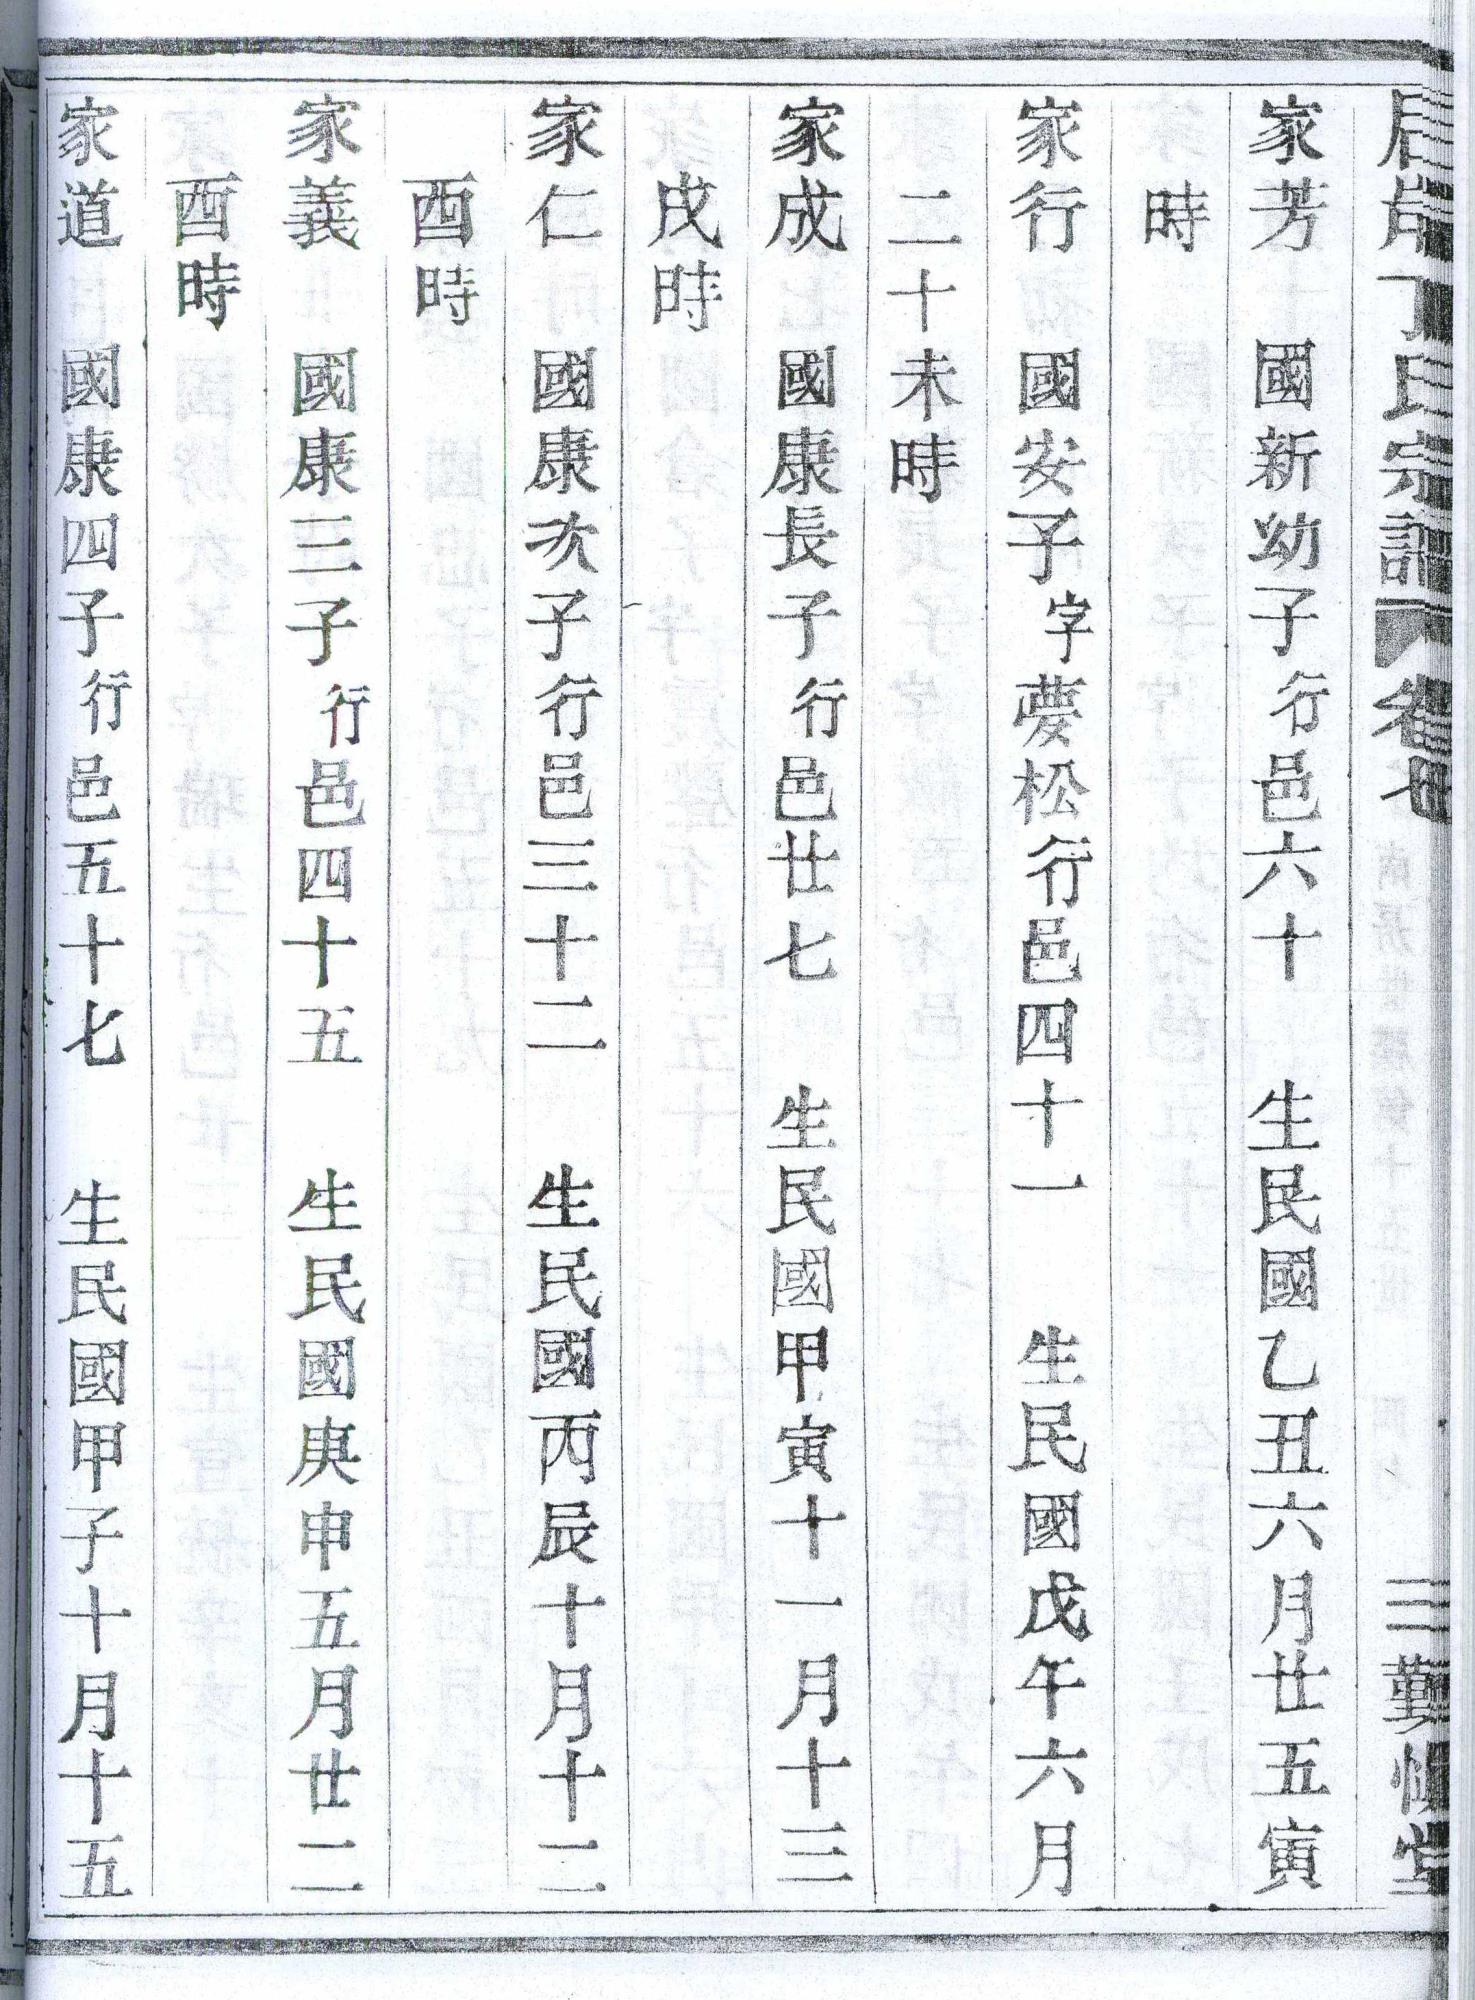 丁氏宗譜 卷七 三 勤慎堂
家芳 國新幼子行邑六十 生民國乙丑六月廿五寅
時
家行 國安子字夢松行邑四十一 生民國戊午六月
二十未時
家成 國康長子行邑廿七 生民國甲寅十一月十三
戌時
家仁 國康次子行邑三十二 生民國丙辰十月十二
酉時
家義 國康三子行邑四十五 生民國庚申五月廿二
酉時
家道 國康四子行邑五十七 生民國甲子十月十五